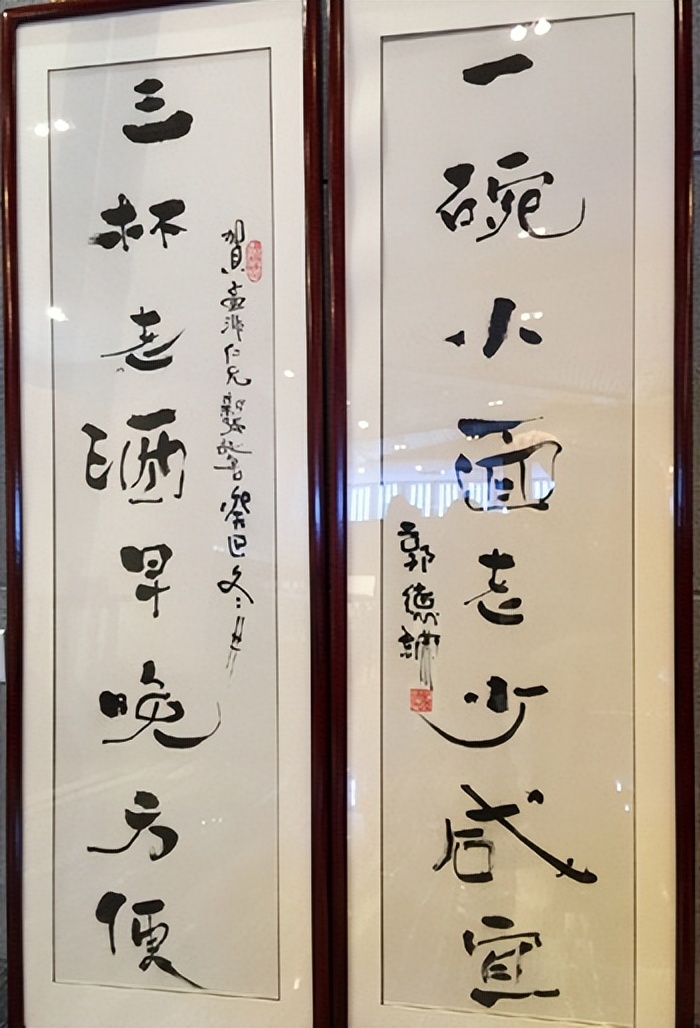 一碗小面老少咸宜
郭德綱
三杯老酒早晚方便
賀孟非仁兄新張 癸巳冬